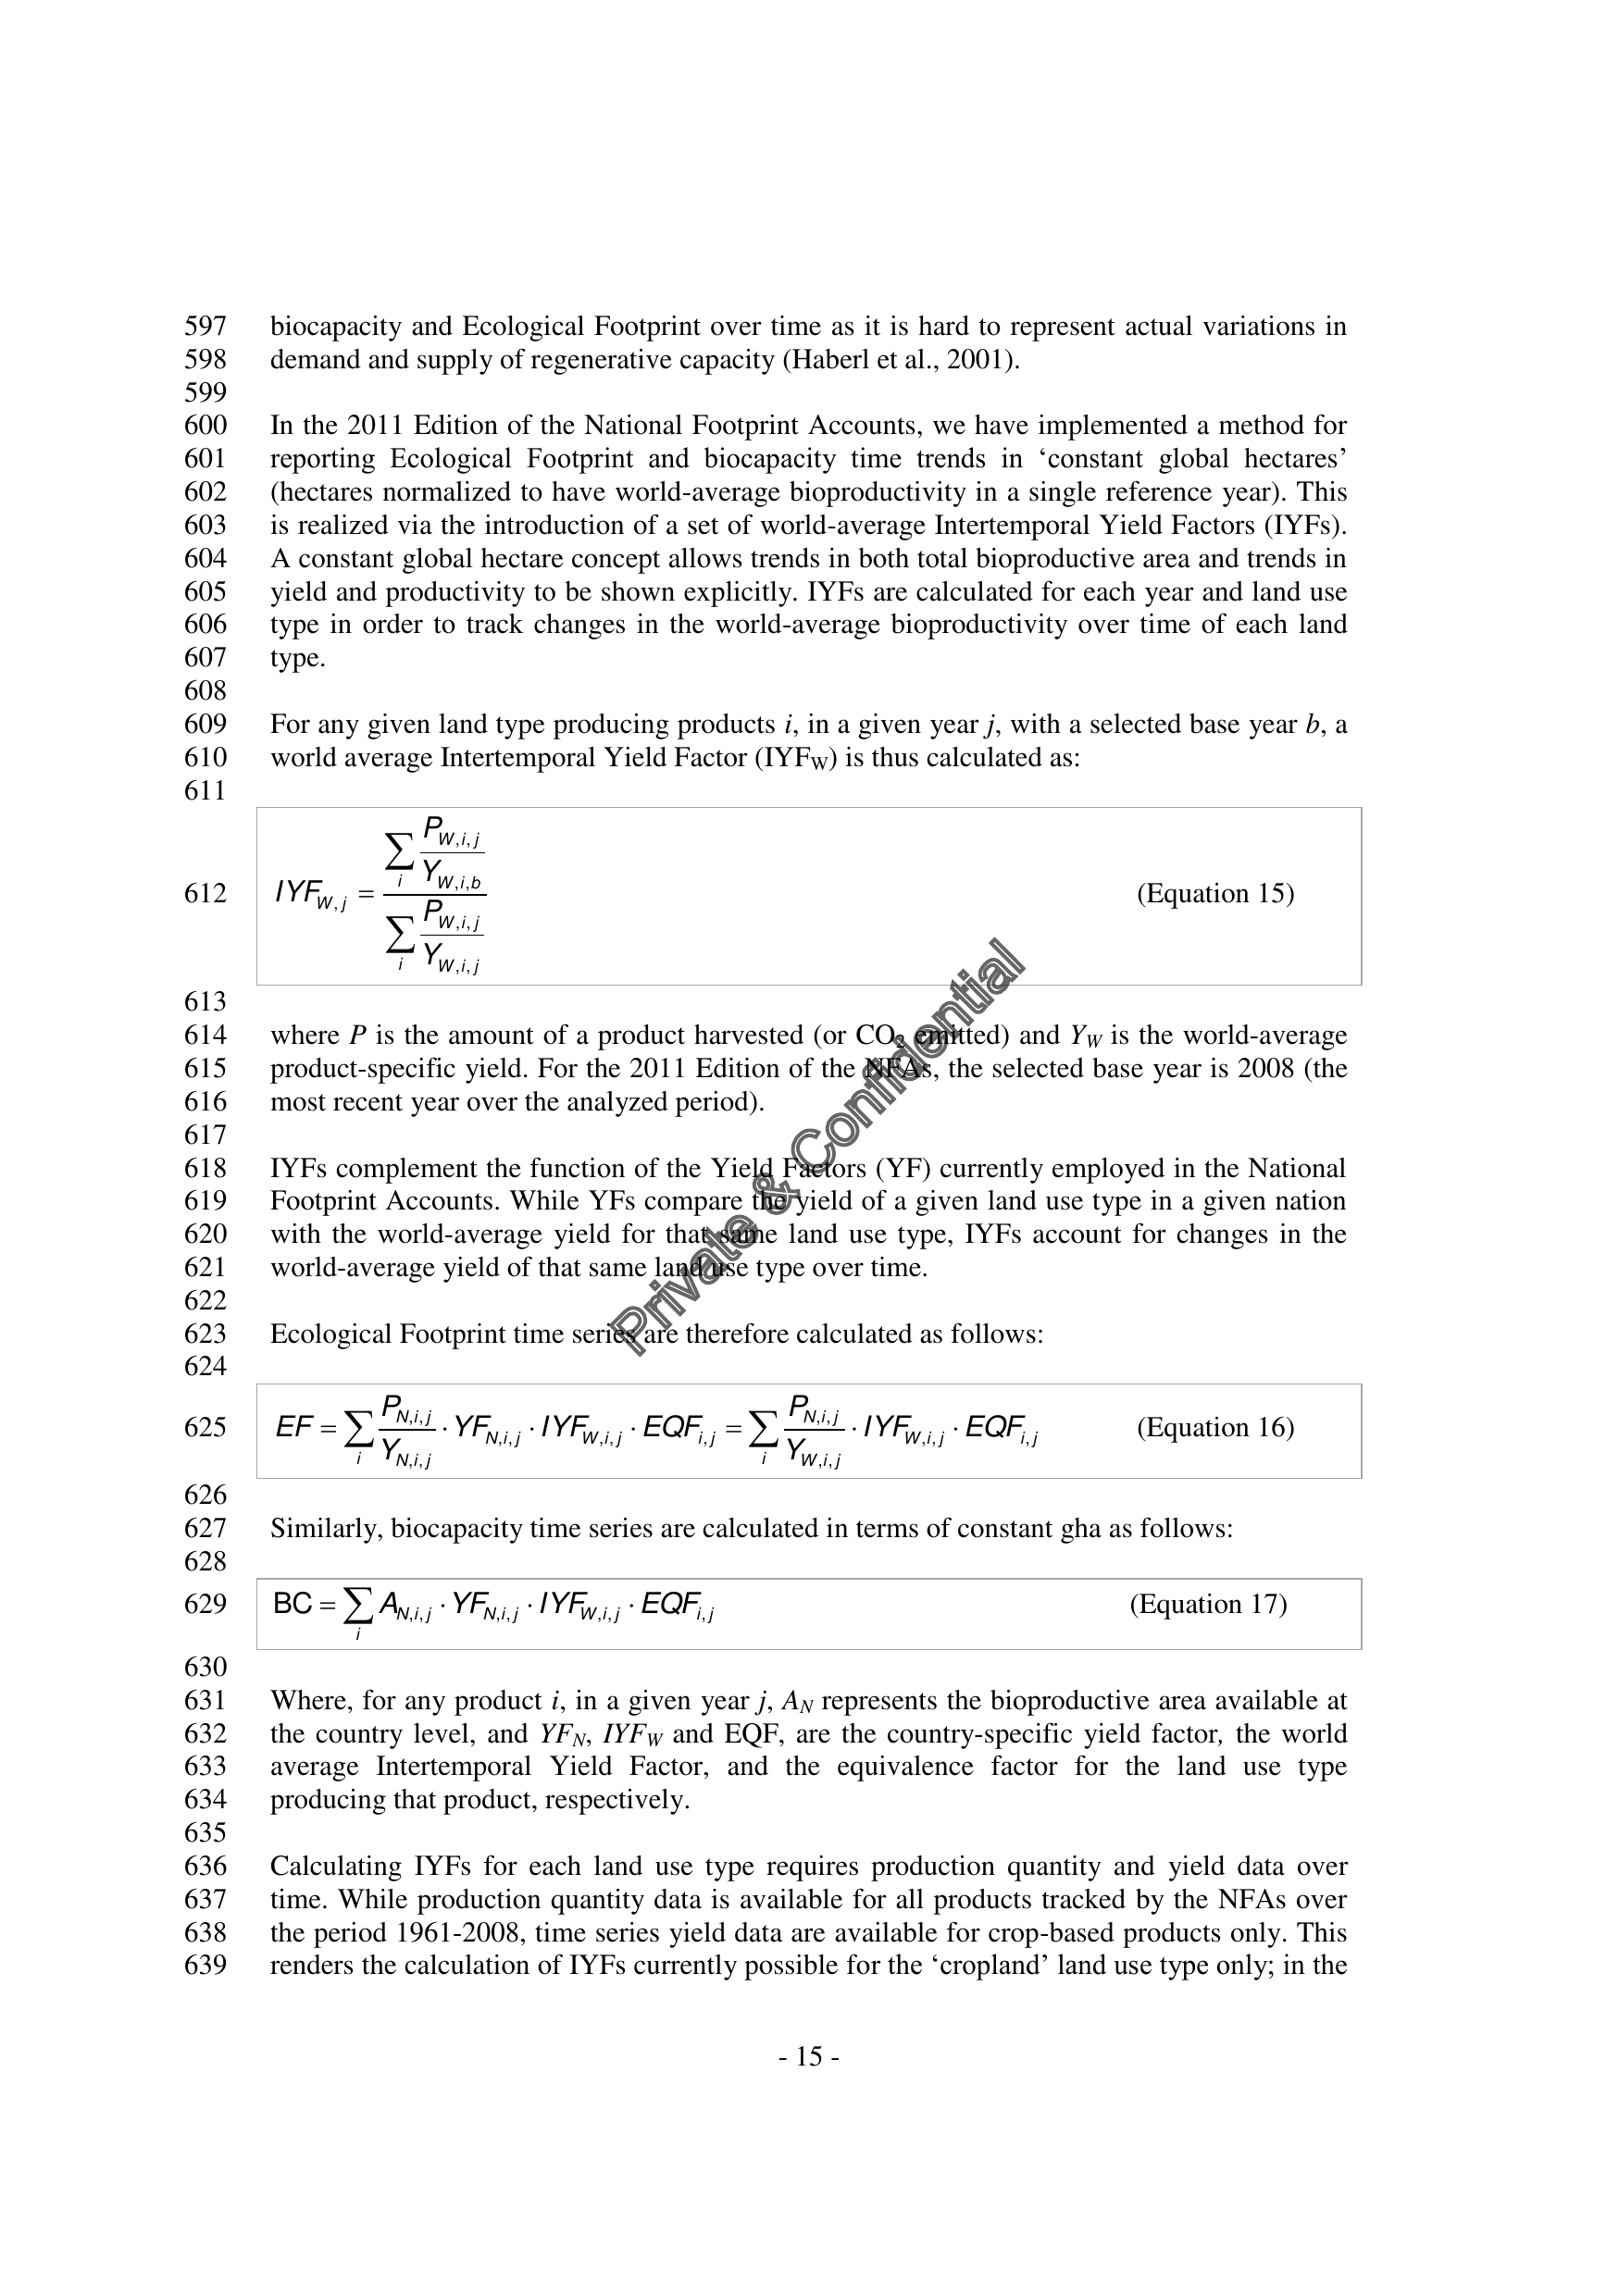 597 biocapacity and Ecological Footprint over time as it is hard to represent actual variations in
598 demand and supply of regenerative capacity (Haberl et al., 2001).
599
600 In the 2011 Edition of the National Footprint Accounts, we have implemented a method for
601 reporting Ecological Footprint and biocapacity time trends in ‘constant global hectares’
602 (hectares normalized to have world-average bioproductivity in a single reference year). This
603 is realized via the introduction of a set of world-average Intertemporal Yield Factors (IYFs).
604 A constant global hectare concept allows trends in both total bioproductive area and trends in
605 yield and productivity to be shown explicitly. IYFs are calculated for each year and land use
606 type in order to track changes in the world-average bioproductivity over time of each land
607 type.
608
609 For any given land type producing products i, in a given year j, with a selected base year b, a
610 world average Intertemporal Yield Factor (IYF_W) is thus calculated as:
611
612 IYF_{W,j} = \frac{\sum_i \frac{P_{W,i,j}}{Y_{W,i,b}}}{\sum_i \frac{P_{W,i,j}}{Y_{W,i,j}}} (Equation 15)
613
614 where P is the amount of a product harvested (or CO₂ emitted) and Y_W is the world-average
615 product-specific yield. For the 2011 Edition of the NFAs, the selected base year is 2008 (the
616 most recent year over the analyzed period).
617
618 IYFs complement the function of the Yield Factors (YF) currently employed in the National
619 Footprint Accounts. While YFs compare the yield of a given land use type in a given nation
620 with the world-average yield for that same land use type, IYFs account for changes in the
621 world-average yield of that same land use type over time.
622
623 Ecological Footprint time series are therefore calculated as follows:
624
625 EF = \sum_i \frac{P_{N,i,j}}{Y_{N,i,j}} · YF_{N,i,j} · IYF_{W,i,j} · EQF_{i,j} = \sum_i \frac{P_{N,i,j}}{Y_{W,i,j}} · IYF_{W,i,j} · EQF_{i,j} (Equation 16)
626
627 Similarly, biocapacity time series are calculated in terms of constant gha as follows:
628
629 BC = \sum_i A_{N,i,j} · YF_{N,i,j} · IYF_{W,i,j} · EQF_{i,j} (Equation 17)
630
631 Where, for any product i, in a given year j, A_N represents the bioproductive area available at
632 the country level, and YF_N, IYF_W and EQF, are the country-specific yield factor, the world
633 average Intertemporal Yield Factor, and the equivalence factor for the land use type
634 producing that product, respectively.
635
636 Calculating IYFs for each land use type requires production quantity and yield data over
637 time. While production quantity data is available for all products tracked by the NFAs over
638 the period 1961-2008, time series yield data are available for crop-based products only. This
639 renders the calculation of IYFs currently possible for the ‘cropland’ land use type only; in the
Private & Confidential
- 15 -